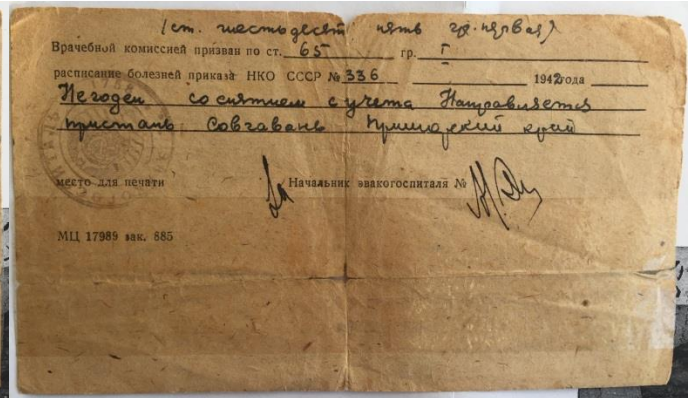 (ст. шестьдесят пять гр. первая)
Врачебной комиссией призван по ст. 65 гр. I
расписание болезней приказа НКО СССР № 336 1942 года
Негоден со снятием с учета Направляется
пристань Совгавань Приморский край
место для печати Начальник эвакогоспиталя №
МЦ 17989 зак. 885